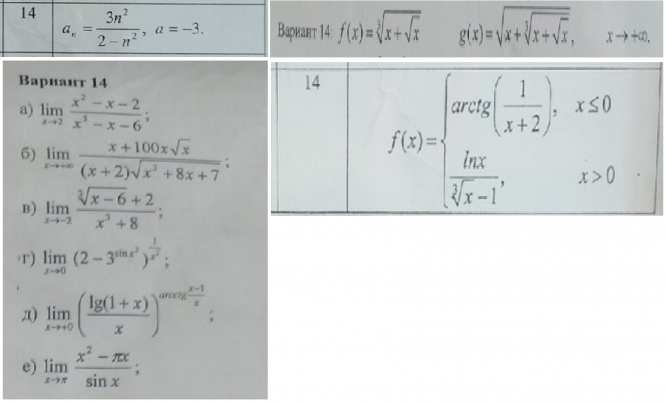 14
a_n = 3n²/(2 – n²), a = –3.
Вариант 14: f(x) = ∛(x + √x) g(x) = √(x + ∛(x + √x)), x → +∞.
Вариант 14
а) lim_{x→2} (x² – x – 2)/(x³ – x – 6);
б) lim_{x→+∞} (x + 100x√x)/((x + 2)√(x³ + 8x + 7));
в) lim_{x→–2} (∛(x – 6) + 2)/(x³ + 8);
г) lim_{x→0} (2 – 3^{sin x²})^{1/x²};
д) lim_{x→+0} (lg(1 + x)/x)^{arcctg (x–1)/x};
е) lim_{x→π} (x² – πx)/sin x;
14
f(x) = { arctg(1/(x + 2)), x ≤ 0
lnx/(∛x – 1), x > 0